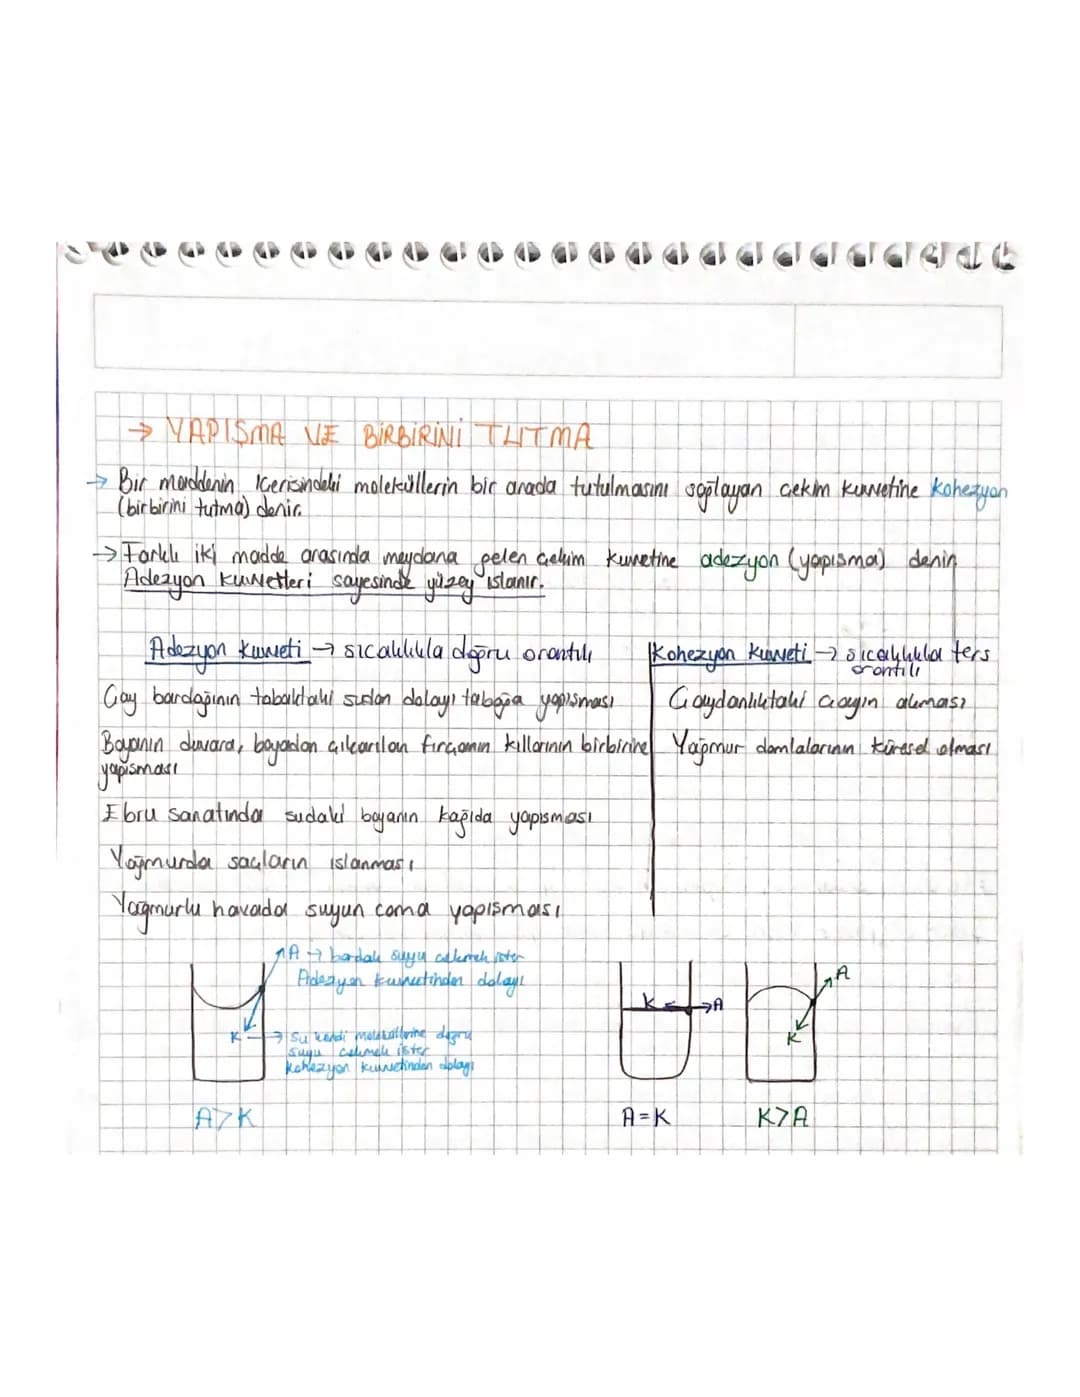 → YAPIŞMA VE BİRBİRİNİ TUTMA
→ Bir maddenin içerisindeki moleküllerin bir arada tutulmasını sağlayan çekim kuvvetine kohezyon
(birbirini tutma) denir.
→ Farklı iki madde arasında meydana gelen çekim kuvvetine adezyon (yapışma) denir.
Adezyon kuvvetleri sayesinde yüzey ıslanır.
Adezyon kuvveti → sıcaklıkla doğru orantılı
Kohezyon kuvveti → sıcaklıkla ters
orantılı
Çay bardağının tabaktaki sudan dolayı tabağa yapışması
Çaydanlıktaki çayın akması
Boyanın duvara, boyadan çıkarılan fırçanın kıllarının birbirine
yapışması
Yağmur damlalarının küresel olması
Ebru sanatında sudaki boyanın kağıda yapışması
Yağmurda saçların ıslanması
Yağmurlu havada suyun cama yapışması
A → bardak suyu çekmek ister
Adezyon kuvvetinden dolayı
K → su kendi moleküllerine doğru
suyu çekmek ister
kohezyon kuvvetinden dolayı
K A
A
K
A>K
A=K
K>A